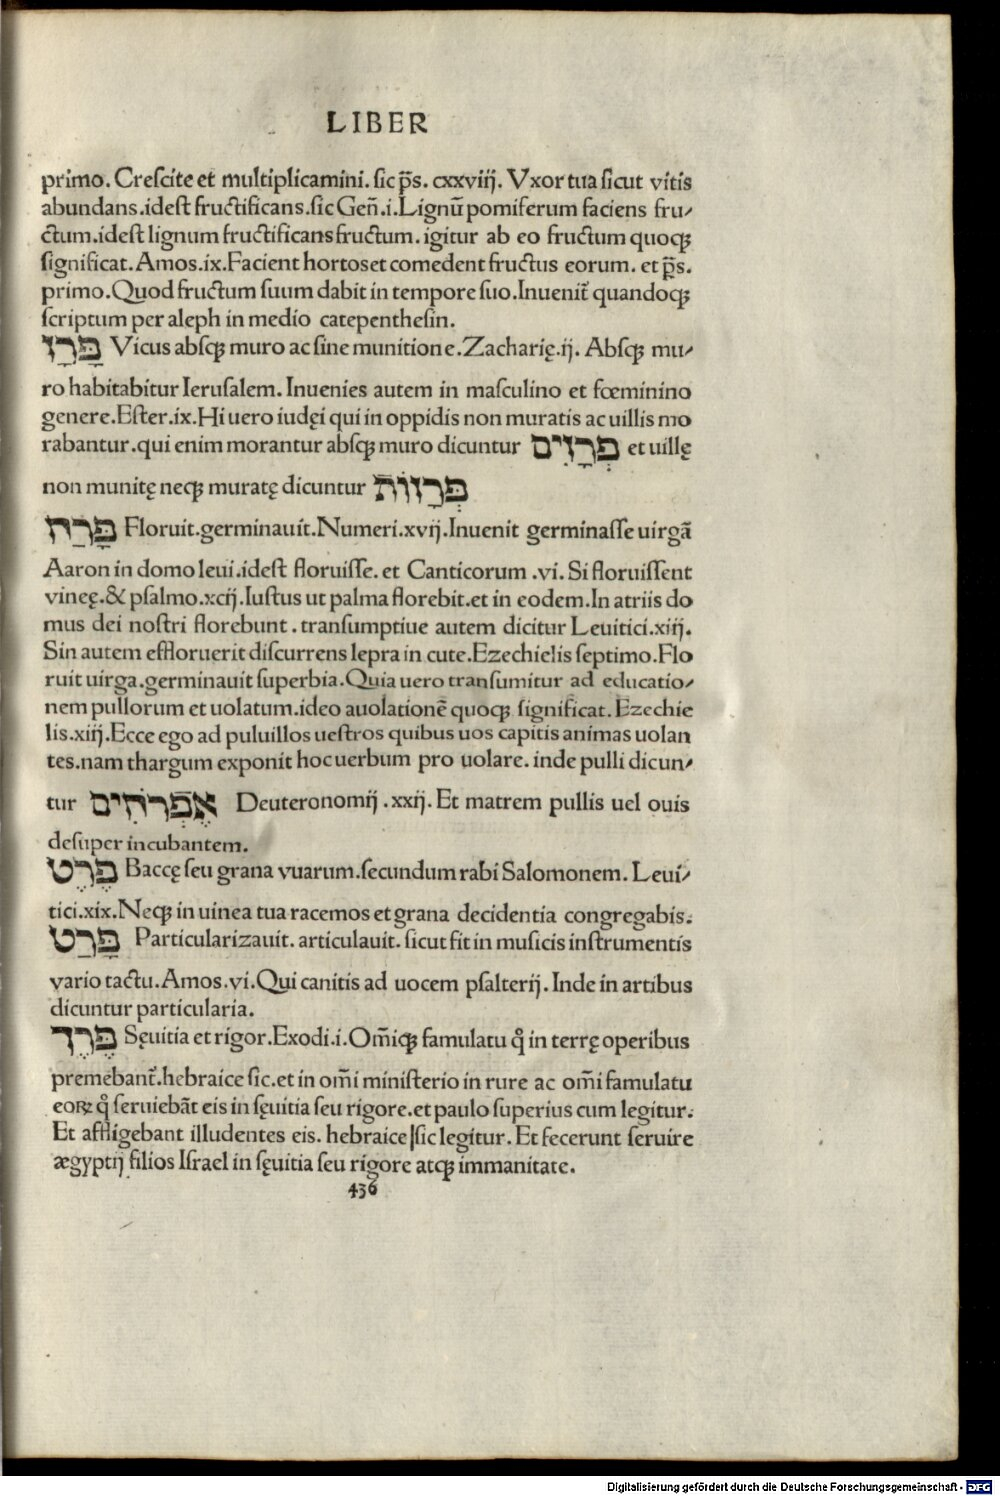 LIBER
primo. Creſcite et multiplicamini. ſic p̃s. cxxviij. Vxor tua ſicut vitis
abundans. ideſt fructificans. ſic Geñ. i. Lignũ pomiferum faciens fru⸗
ctum. ideſt lignum fructificans fructum. igitur ab eo fructum quoqꝫ
ſignificat. Amos. ix. Facient hortos et comedent fructus eorum. et p̃s.
primo. Quod fructum ſuum dabit in tempore ſuo. Inuenit̃ quandoqꝫ
ſcriptum per aleph in medio catepentheſin.
פָּרָז Vicus abſqꝫ muro ac ſine munitione. Zacharię. ij. Abſqꝫ mu⸗
ro habitabitur Ieruſalem. Inuenies autem in maſculino et fœminino
genere. Eſter. ix. Hi uero iudęi qui in oppidis non muratis ac uillis mo
rabantur. qui enim morantur abſqꝫ muro dicuntur פְּרָזִים et uillę
non munitę neqꝫ muratę dicuntur פְּרָזוֹת
פָּרַח Floruit. germinauit. Numeri. xvij. Inuenit germinaſſe uirgã
Aaron in domo leui. ideſt floruiſſe. et Canticorum .vi. Si floruiſſent
vineę. & pſalmo. xcij. Iuſtus ut palma florebit. et in eodem. In atriis do
mus dei noſtri florebunt. tranſumptiue autem dicitur Leuitici. xiij.
Sin autem effloruerit diſcurrens lepra in cute. Ezechielis ſeptimo. Flo
ruit uirga. germinauit ſuperbia. Quia uero tranſumitur ad educatio⸗
nem pullorum et uolatum. ideo auolationẽ quoqꝫ ſignificat. Ezechie
lis. xiij. Ecce ego ad puluillos ueſtros quibus uos capitis animas uolan
tes. nam thargum exponit hoc uerbum pro uolare. inde pulli dicun⸗
tur אֶפְרֹחִים Deuteronomij .xxij. Et matrem pullis uel ouis
deſuper incubantem.
פֶּרֶט Baccę ſeu grana vuarum. ſecundum rabi Salomonem. Leui⸗
tici. xix. Neqꝫ in uinea tua racemos et grana decidentia congregabis.
פָּרַט Particularizauit. articulauit. ſicut fit in muſicis inſtrumentis
vario tactu. Amos. vi. Qui canitis ad uocem pſalterij. Inde in artibus
dicuntur particularia.
פֶּרֶךְ Sęuitia et rigor. Exodi. i. Om̃iqꝫ famulatu q̊ in terrę operibus
premebant̃. hebraice ſic. et in om̃i miniſterio in rure ac om̃i famulatu
eoꝝ q̊ ſeruiebãt eis in ſęuitia ſeu rigore. et paulo ſuperius cum legitur.
Et affligebant illudentes eis. hebraice |ſic legitur. Et fecerunt ſeruire
ægyptij filios Iſrael in ſęuitia ſeu rigore atqꝫ immanitate.
436
Digitalisierung gefördert durch die Deutsche Forschungsgemeinschaft - DFG